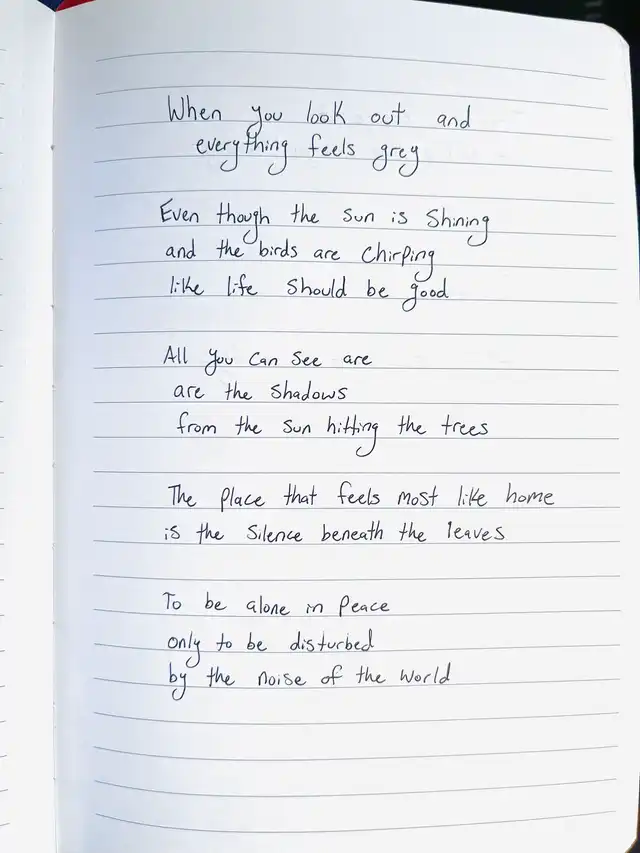 When you look out and
everything feels grey
Even though the Sun is Shining
and the birds are Chirping
like life Should be good
All you Can See are
are the Shadows
from the Sun hitting the trees
The Place that feels most like home
is the Silence beneath the leaves
To be alone in Peace
only to be disturbed
by the noise of the World